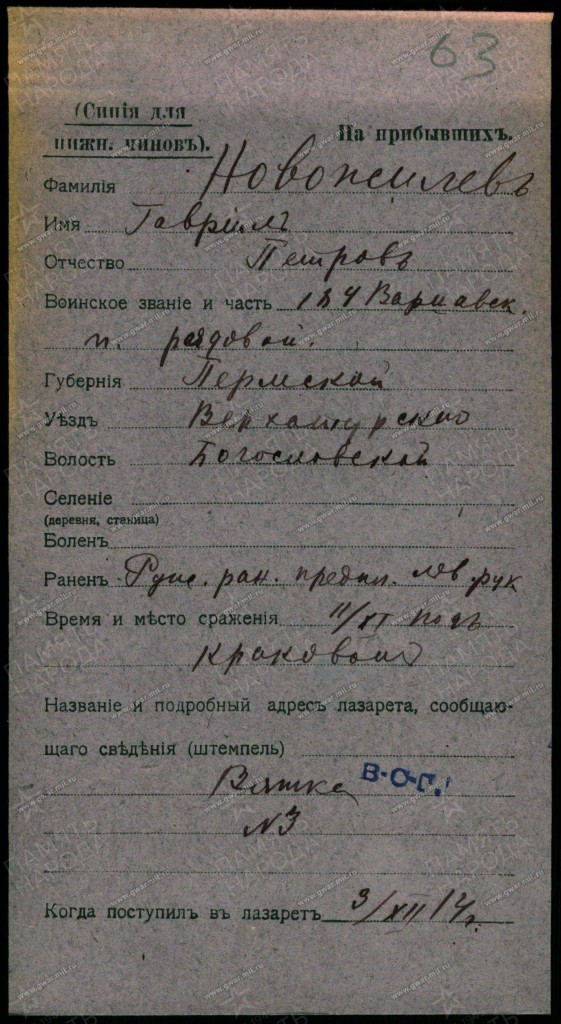 63
(Синія для
нижн. чиновъ).
На прибывшихъ.
Фамилія Новожилевъ
Имя Гаврилъ
Отчество Петровъ
Воинское званіе и часть 184 Варшавск.
п. рядовой.
Губернія Пермской
Уѣздъ Верхотурскаго
Волость Богословской
Селеніе
(деревня, станица)
Боленъ
Раненъ Руж. ран. предпл. лев. рук
Время и мѣсто сраженія 11/XI подъ
Краковомъ
Названіе и подробный адресъ лазарета, сообщаю-
щаго свѣдѣнія (штемпель)
Вятка В-О-Г.
N3
Когда поступилъ въ лазаретъ 3/XII 14 г.